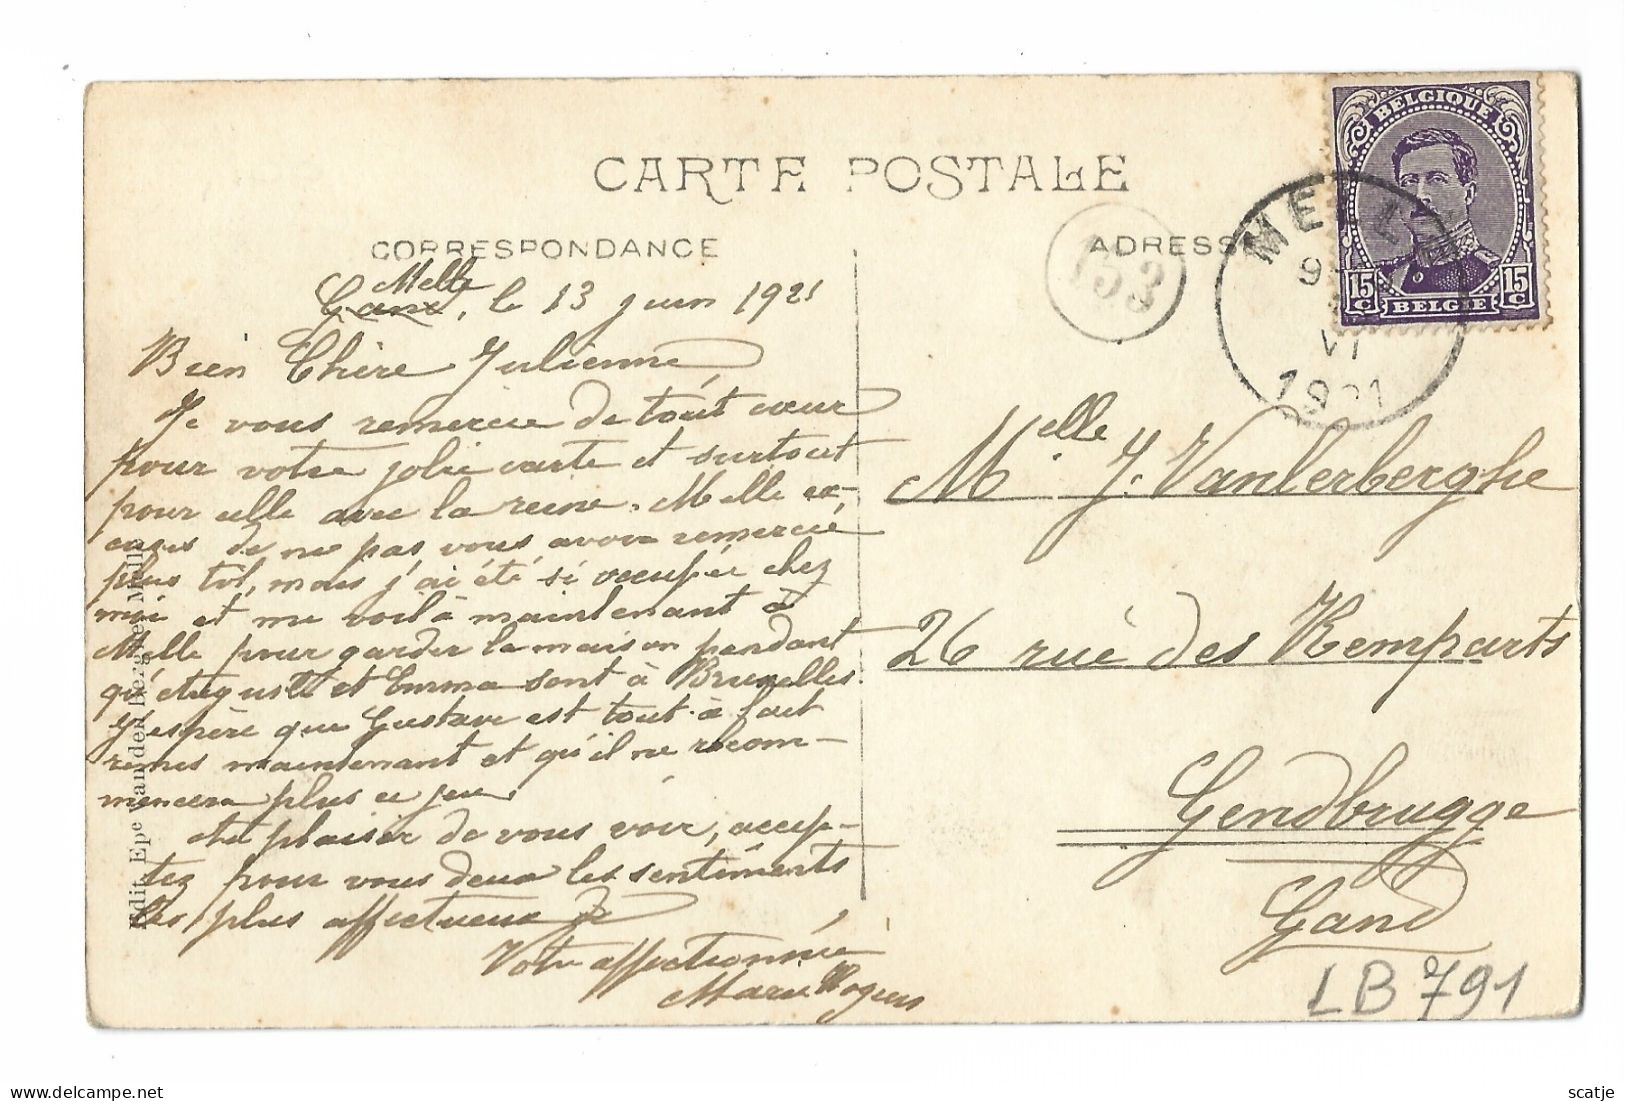 CARTE POSTALE
CORRESPONDANCE
ADRESSE
153
BELGIQUE
15 C
15 C
BELGIE
MELLE
1921
Melle
Gand, le 13 juin 1921
Bien Chère Julienne
Je vous remercie de tout cœur
pour votre jolie carte et surtout
pour celle avec la reine. Melle ex-
cusez de ne pas vous avoir remercié
plus tôt, mais j'ai été si occupée chez
moi et me voilà maintenant à
Melle pour garder la maison pendant
qu'Auguste et Emma sont à Bruxelles.
J'espère que Gustave est tout à fait
remis maintenant et qu'il ne recom-
mencera plus ce jeu.
Au plaisir de vous voir, accep-
tez pour vous deux les sentiments
les plus affectueux
Votre affectionnée
Marie
Melle J. Vanlerberghe
26 rue des Remparts
Gendbrugge
Gand
LB 791
Edit. Epe Van den Melle
scatje